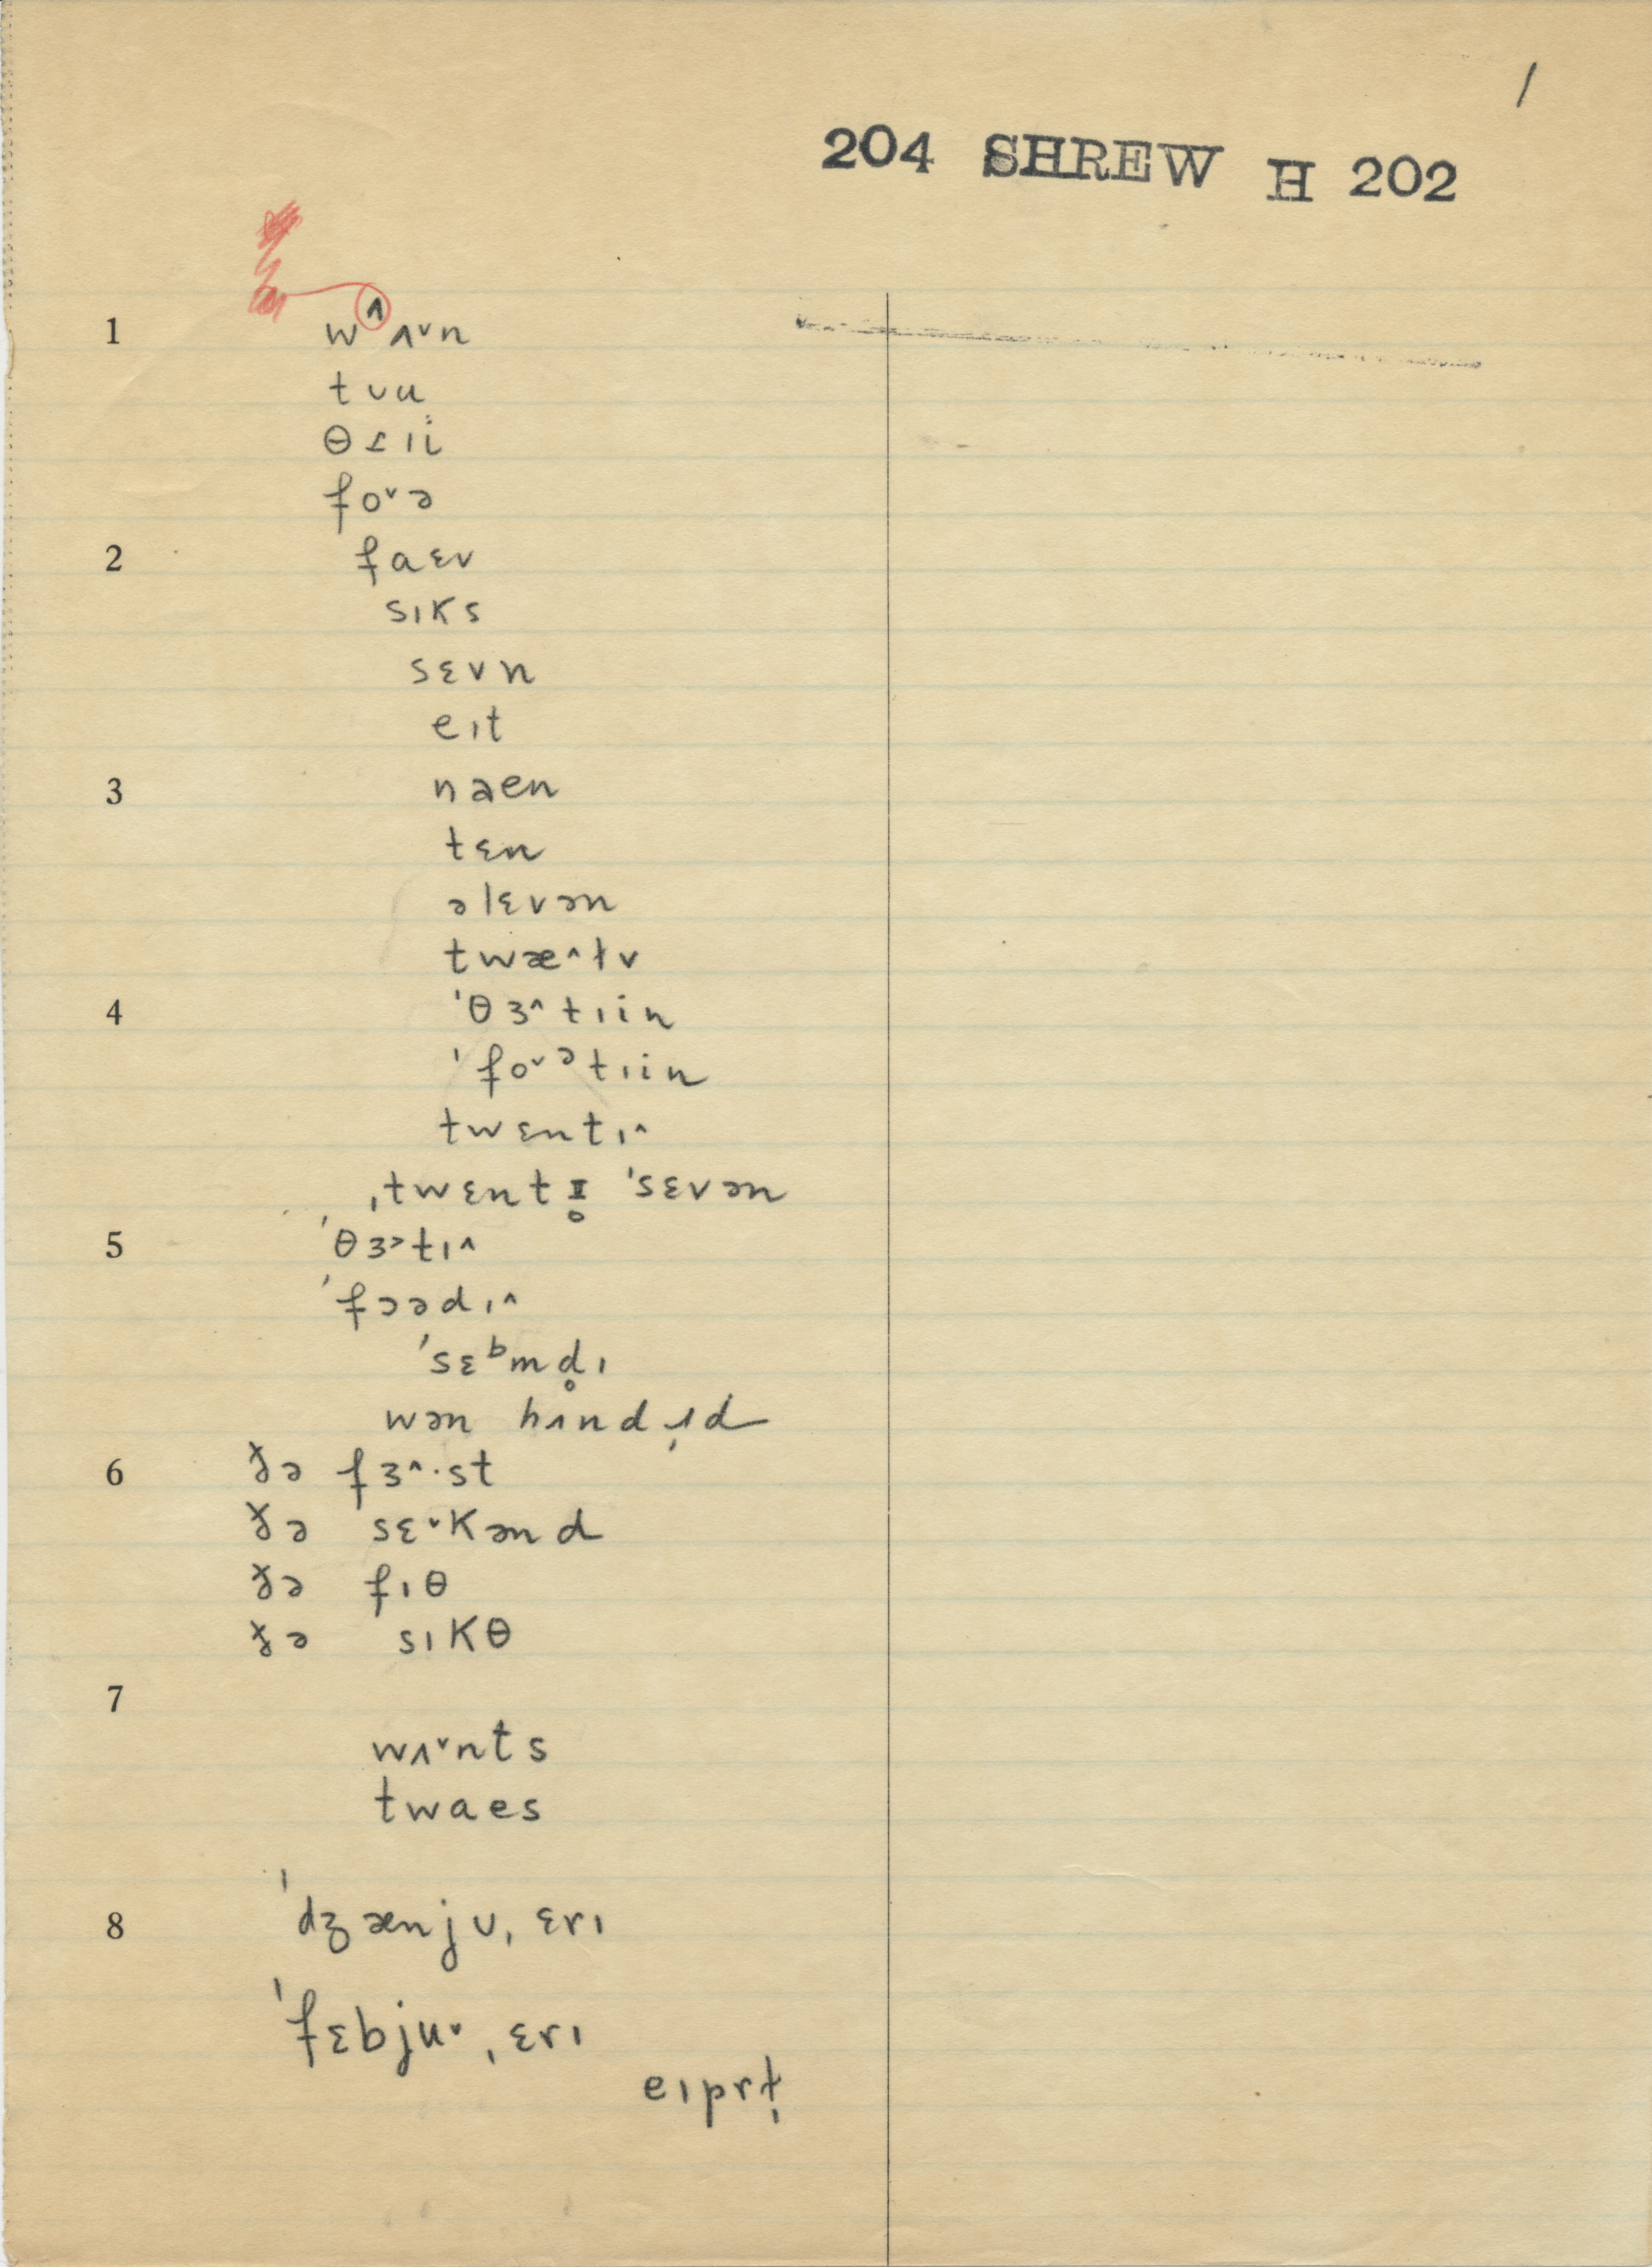 /
204 SHREW H 202
1 wɅʌ˅n
tʊu
θɹɪi
fo˅ə
2 faɛv
sɪks
sɛvn
eɪt
3 naen
tɛn
əlɛvən
twæ^ɫv
4 ˈθɜ^tɪin
ˈfo˅ᵊtɪin
twɛntɪ^
ˌtwɛntɪ̥ ˈsɛvən
5 ˈθɜ˃tɪ^
ˈfɔədɪ^
ˈsɛᵇmd̥ɪ
wən hʌndɹ̩d
6 ɣ̵ə fɜ^·st
ɣ̵ə sɛ˅kənd
ɣ̵ə fɪθ
ɣ̵ə sɪkθ
7
wʌ˅nts
twaes
8 ˈdʒænjʊˌɛrɪ
ˈfɛbju˅ˌɛrɪ
eɪprɫ̩